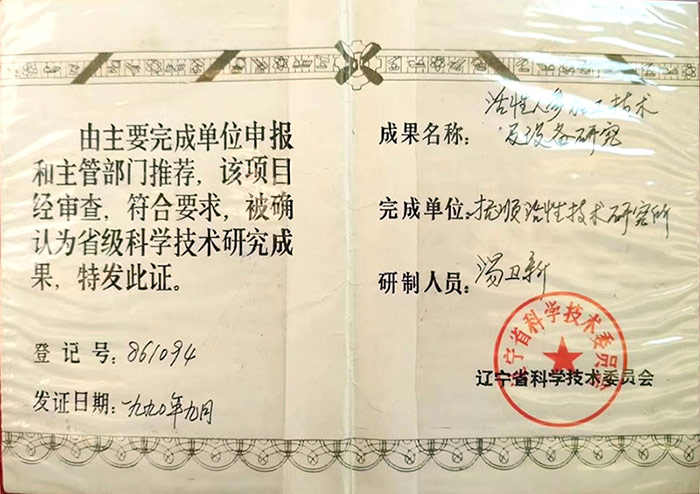 由主要完成单位申报
和主管部门推荐，该项目
经审查，符合要求，被确
认为省级科学技术研究成
果，特发此证。
登记号：861094
发证日期：一九九0年九月
活性人参加工技术
成果名称：及设备研究
完成单位：抚顺活性技术研究所
研制人员：汤卫新
辽宁省科学技术委员会
辽宁省科学技术委员会